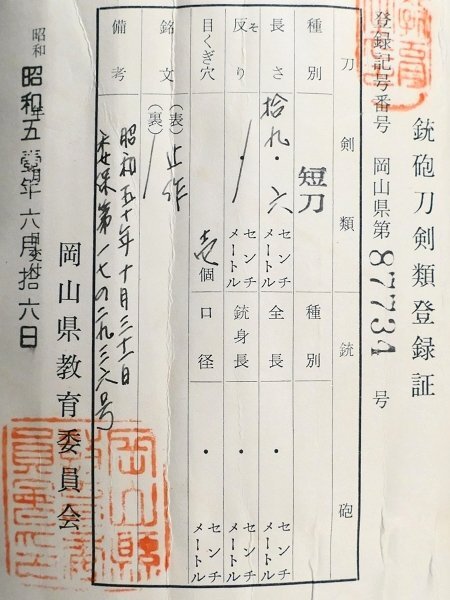 銃砲刀剣類登録証
登録記号番号 岡山県第 87734 号
刀剣類 銃砲
種別 短刀 種別
長さ 拾九・六 センチメートル 全長 ・ センチメートル
反り そ ・ センチメートル 銃身長 ・ センチメートル
目くぎ穴 壱個 口径 ・ センチメートル
銘文 (表) 正作
(裏)
備考 昭和五十年十月三十一日
委保第一七の二九三六号
昭和 昭和五 年六月拾六日
岡山県教育委員会